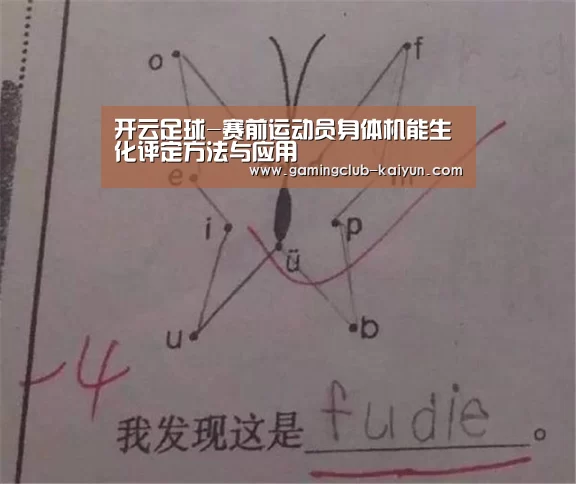 o f
开云足球-赛前运动员身体机能生
化评定方法与应用
www.gamingclub-kaiyun.com
e m
i p
ü
u b
-4
我发现这是fudie。